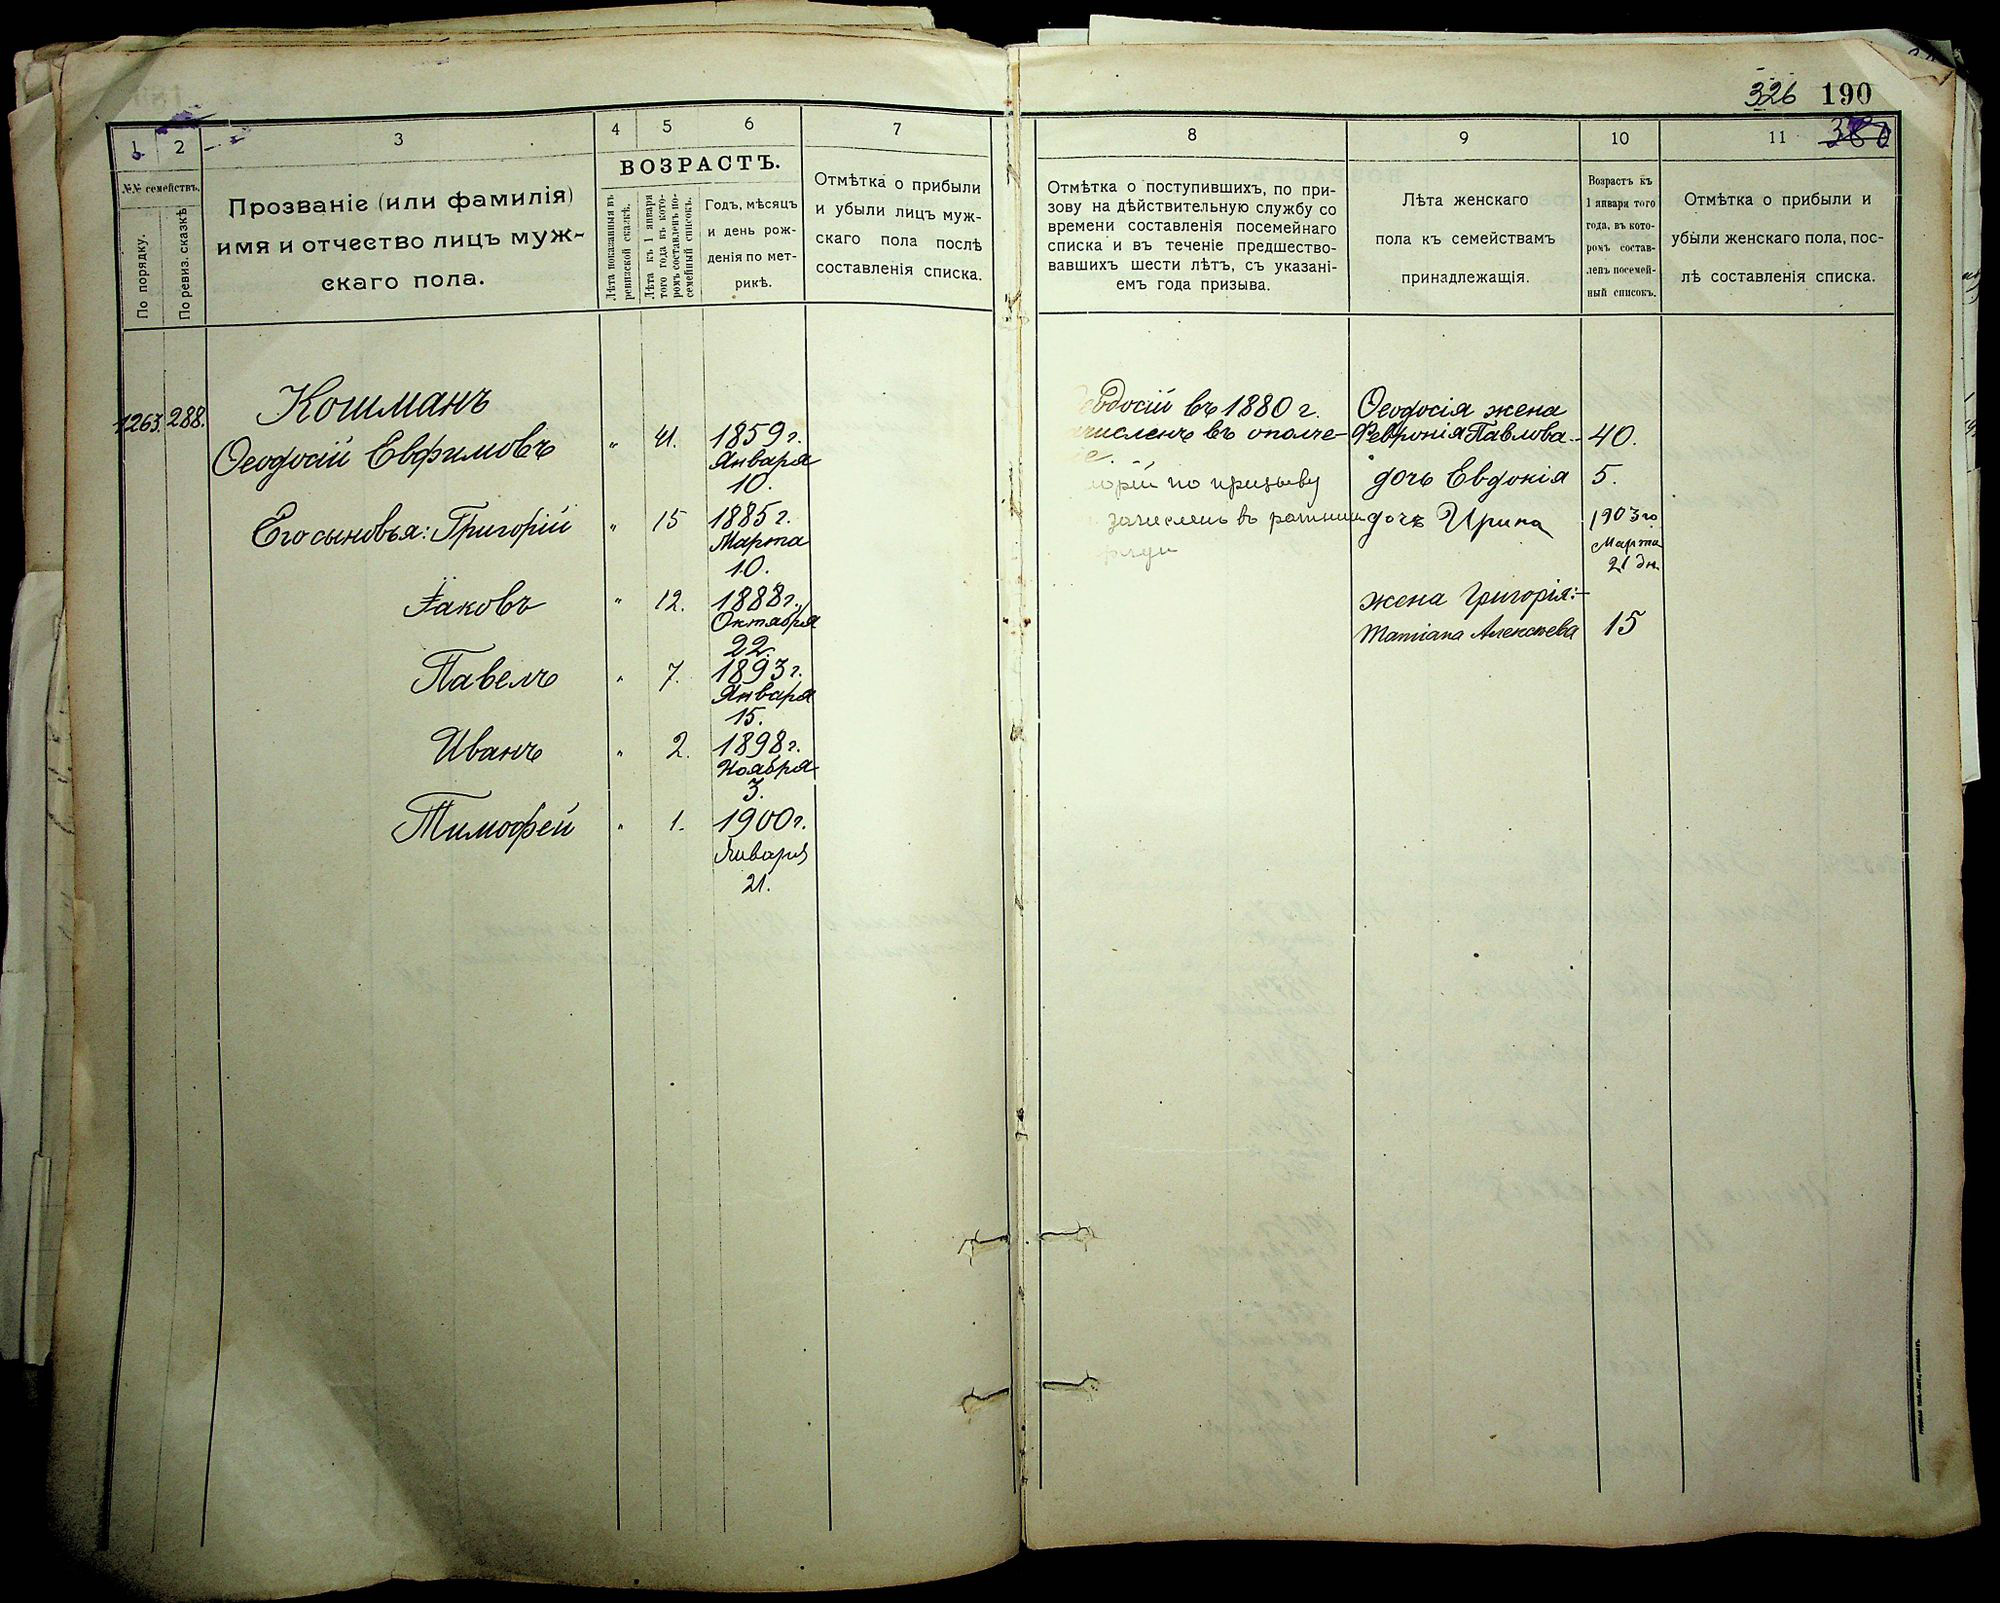 326 190
1
2
3
4
5
6
7
№№ семействъ.
По порядку.
По ревиз. сказкѣ
Прозваніе (или фамилія)
имя и отчество лицъ муж-
скаго пола.
ВОЗРАСТЪ.
Лѣта показанныя въ
ревизской сказкѣ.
Лѣта къ 1 января
того года къ кото-
ромъ составленъ по-
семейный списокъ.
Годъ, мѣсяцъ
и день рож-
денія по мет-
рикѣ.
Отмѣтка о прибыли
и убыли лицъ муж-
скаго пола послѣ
составленія списка.
8
9
10
11
Отмѣтка о поступившихъ, по при-
зову на дѣйствительную службу со
времени составленія посемейнаго
списка и въ теченіе предшество-
вавшихъ шести лѣтъ, съ указані-
емъ года призыва.
Лѣта женскаго
пола къ семействамъ
принадлежащія.
Возрастъ къ
1 января того
года, въ кото-
ромъ состав-
ленъ посемей-
ный списокъ.
Отмѣтка о прибыли и
убыли женскаго пола, пос-
лѣ составленія списка.
1263. 288.
Кошманъ
Ѳеодосій Евфимовъ " 41. 1859 г.
Января
10.
Его сыновья: Григорій " 15 1885 г.
Марта
10.
Іаковъ " 12. 1888 г.
Октября
22.
Павелъ " 7. 1893 г.
Января
15.
Иванъ " 2. 1898 г.
Ноября
3.
Тимофей " 1. 1900 г.
Января
21.
въ 1880 г.
въ ополче-
по призыву
зачисленъ въ ратники
Ѳеодосія жена
Февронія Павлова 40.
дочь Евдокія 5.
дочь Ирина 1903 го
Марта
21 дн.
жена Григорія:-
Татіана Алексѣева 15